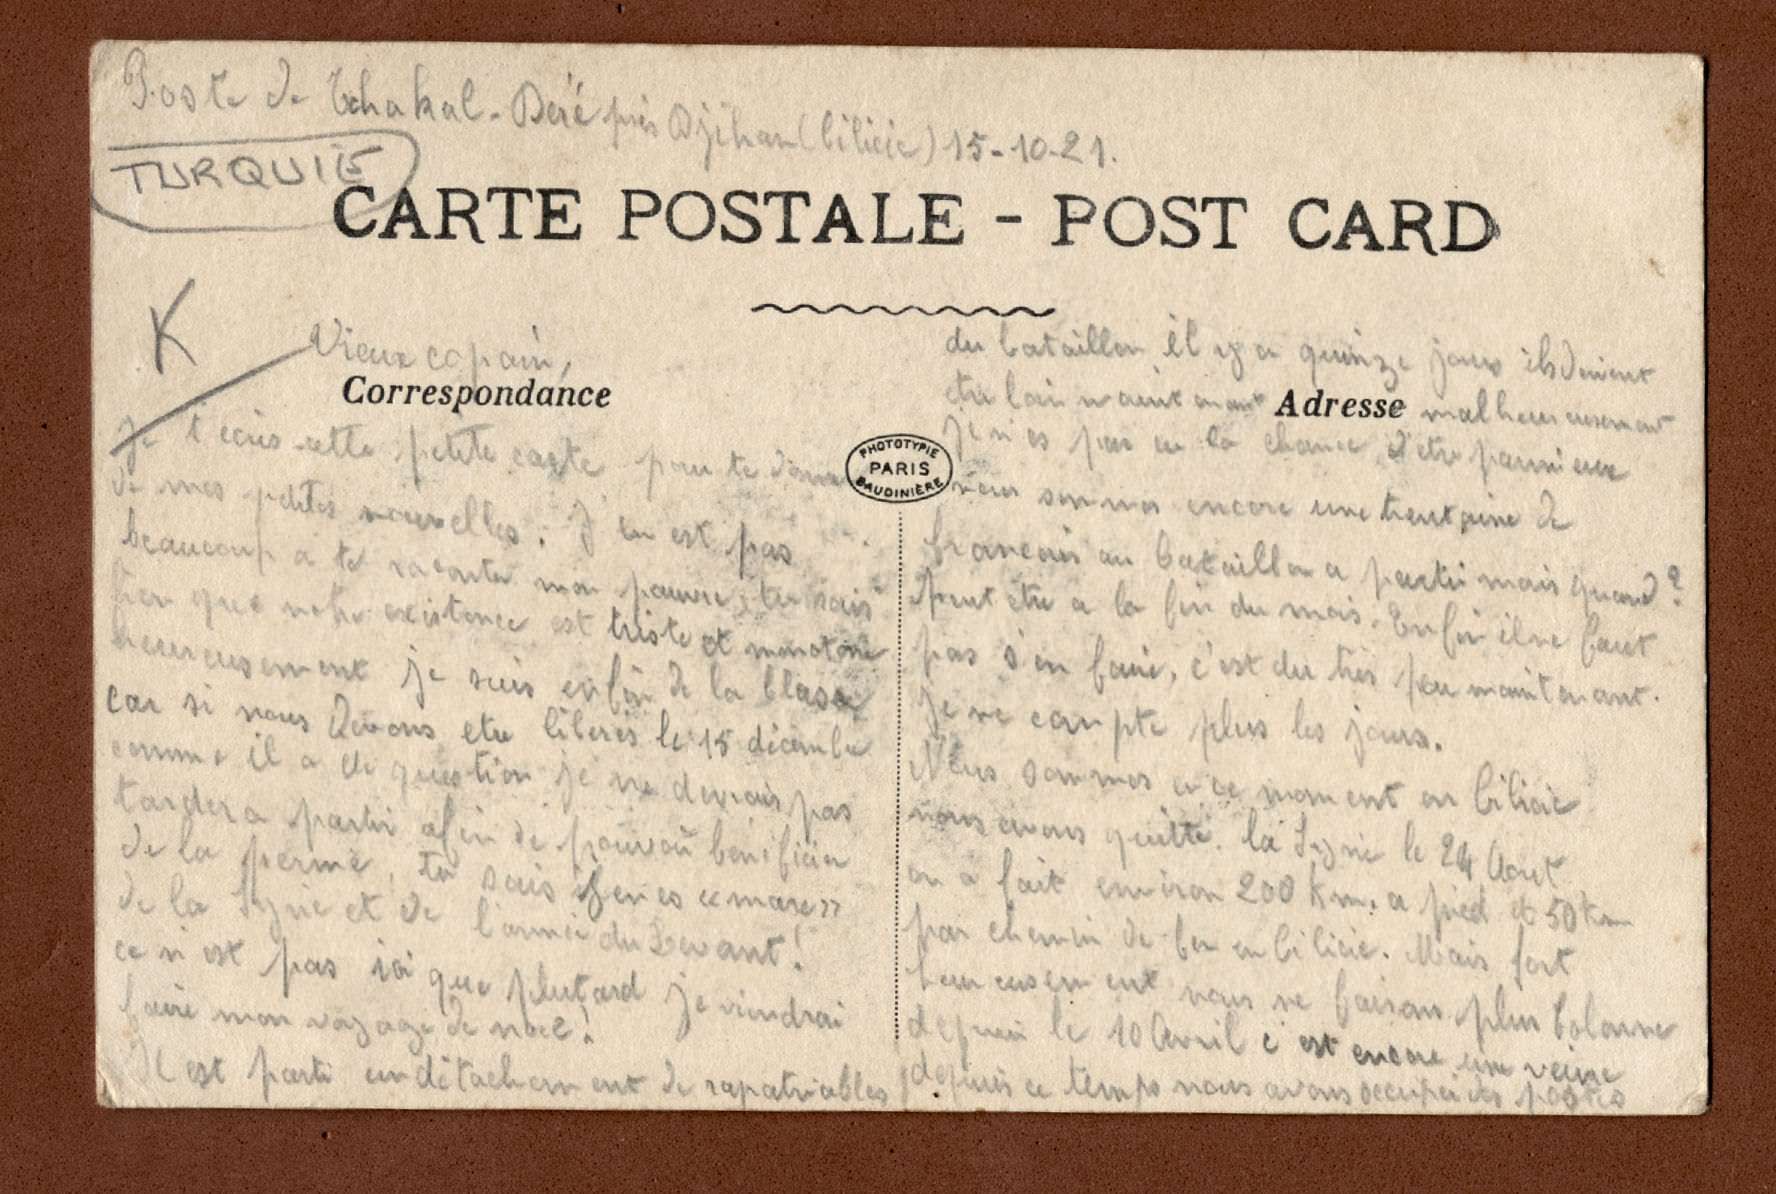 Poste de Tchakal-Déré près Djihan (Cilicie) 15-10-21.
TURQUIE
CARTE POSTALE - POST CARD
K
Vieux copain,
Correspondance
Je t'écris cette petite carte pour te donner
de mes petites nouvelles. J'en est pas
beaucoup a te raconter mon pauvre, tu sais
bien que notre existence est triste et monotone
heureusement je suis enfin de la classe
car si nous devons etre libérés le 15 décembre
comme il a de question je ne devrais pas
tarder a partir afin de pouvoir bénificier
de la perme, tu sais j'en es "mare"
de la Syrie et de l'armée du Levant!
ce n'est pas ici que plutard je viendrai
faire mon voyage de noce!
Il est parti un détachement de rapatriables
PHOTOTYPIE
PARIS
BAUDINIÈRE
du bataillon il y a quinze jours ils doivent
etre loin maintenant malheureusement
Adresse
je n'es pas eu la chance d'etre parmi eux
nous sommes encore une trentaine de
francais au bataillon a partir mais quand?
peut etre a la fin du mois. Enfin il ne faut
pas s'en faire, c'est du tres peu maintenant.
Je ne compte plus les jours.
Nous sommes en ce moment en Cilicie
nous avons quitté la Syrie le 24 Aout
on a fait environ 200 km. a pied et 50 km
par chemin de fer en Cilicie. Mais fort
heureusement nous ne faisons plus colonne
depuis le 10 Avril c'est encore une veine
depuis ce temps nous avons occupé des postes